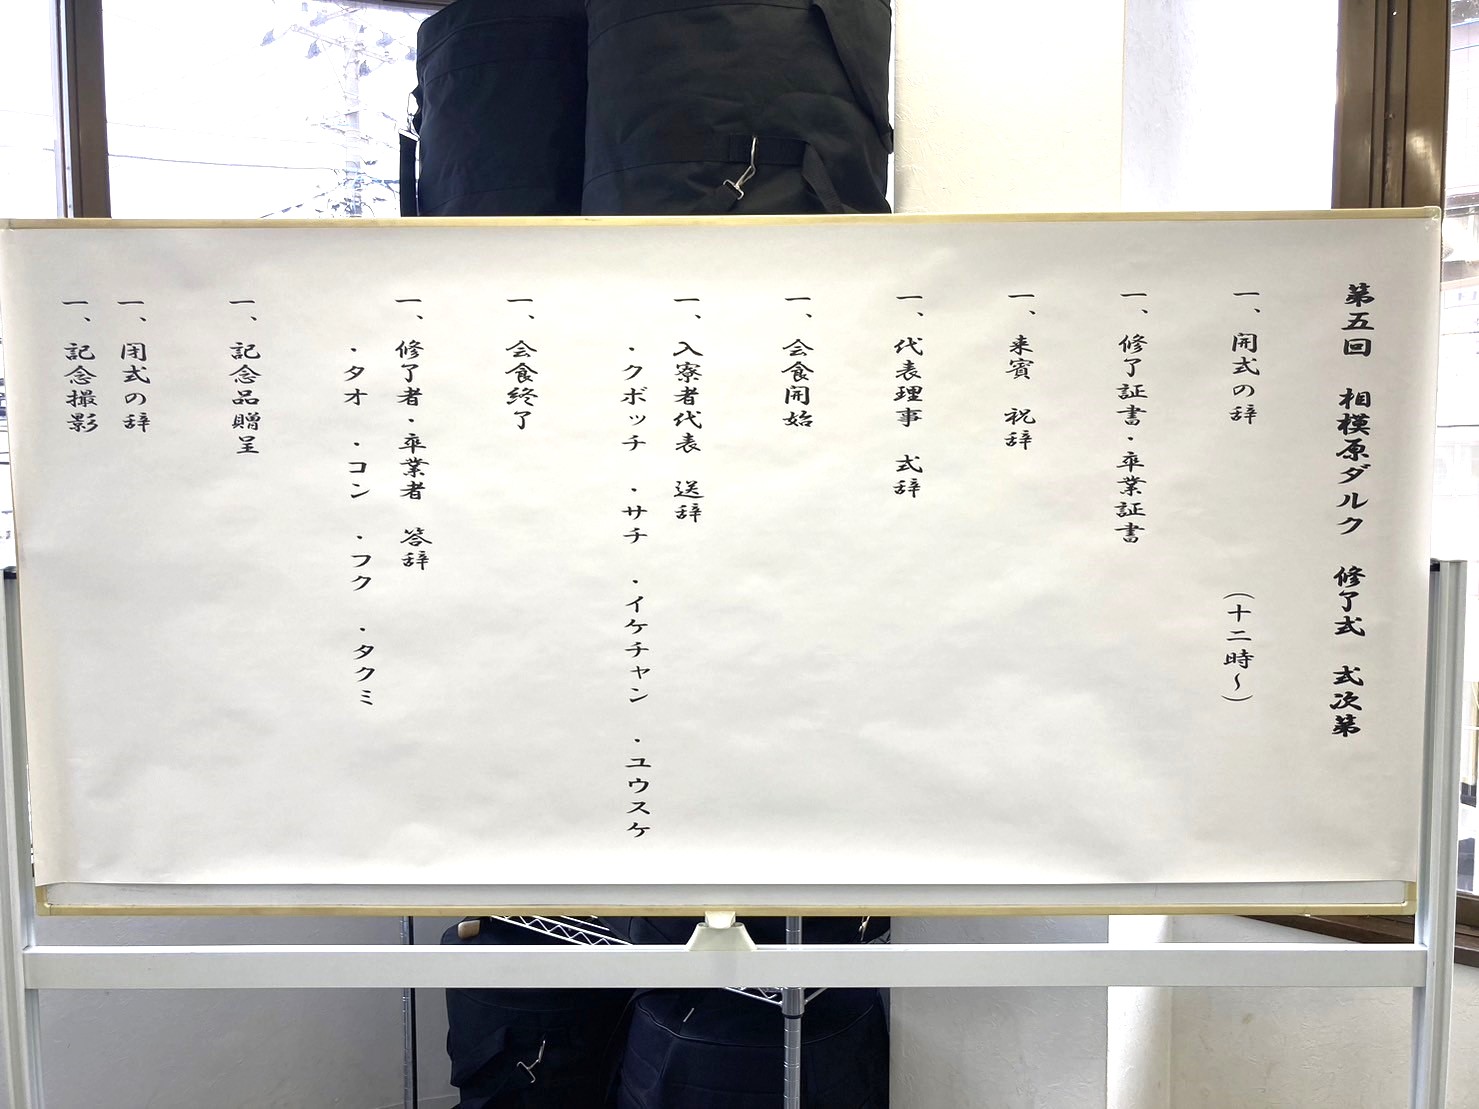 第五回 相模原ダルク 修了式 式次第
一、開式の辞 （十二時～）
一、修了証書・卒業証書
一、来賓 祝辞
一、代表理事 式辞
一、会食開始
一、入寮者代表 送辞
・クボッチ ・サチ ・イケチャン ・ユウスケ
一、会食終了
一、修了者・卒業者 答辞
・タオ ・コン ・フク ・タクミ
一、記念品贈呈
一、閉式の辞
一、記念撮影